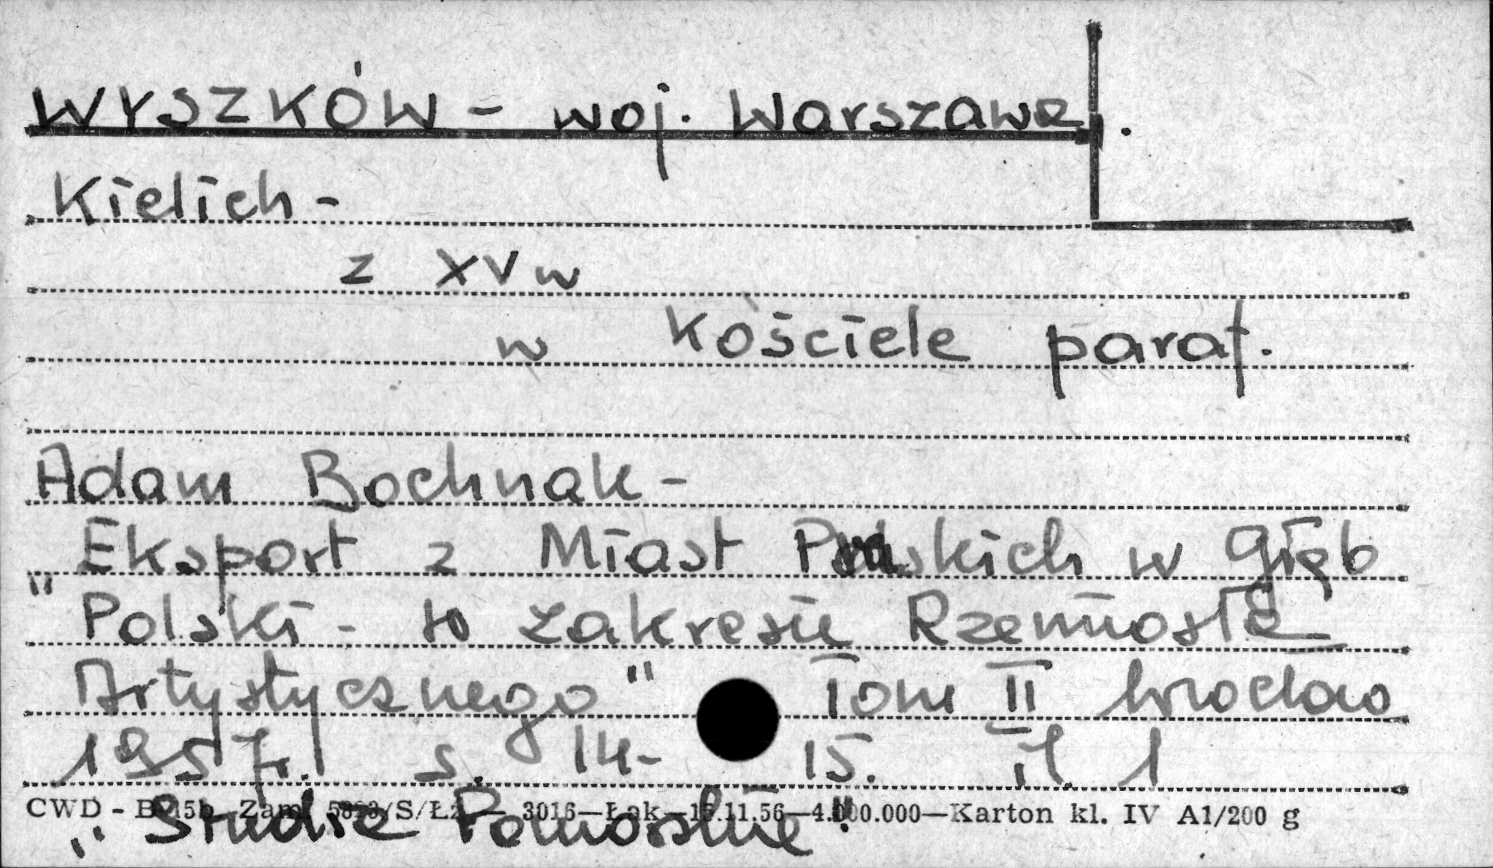 WYSZKÓW - woj. Warszawa.
Kielich -
z XV w
w Kościele paraf.
Adam Bochnak -
"Eksport z Miast Pruskich w Głąb
Polski - w zakresie Rzemiosła
Artystycznego" Tom II Wrocław
1957r. s. 14-15. il. 1
"Studia Pomorskie"
CWD - B 15b Zam. /S/Łz — 3016—Łąk—15.11.56—4.000.000—Karton kl. IV A1/200 g